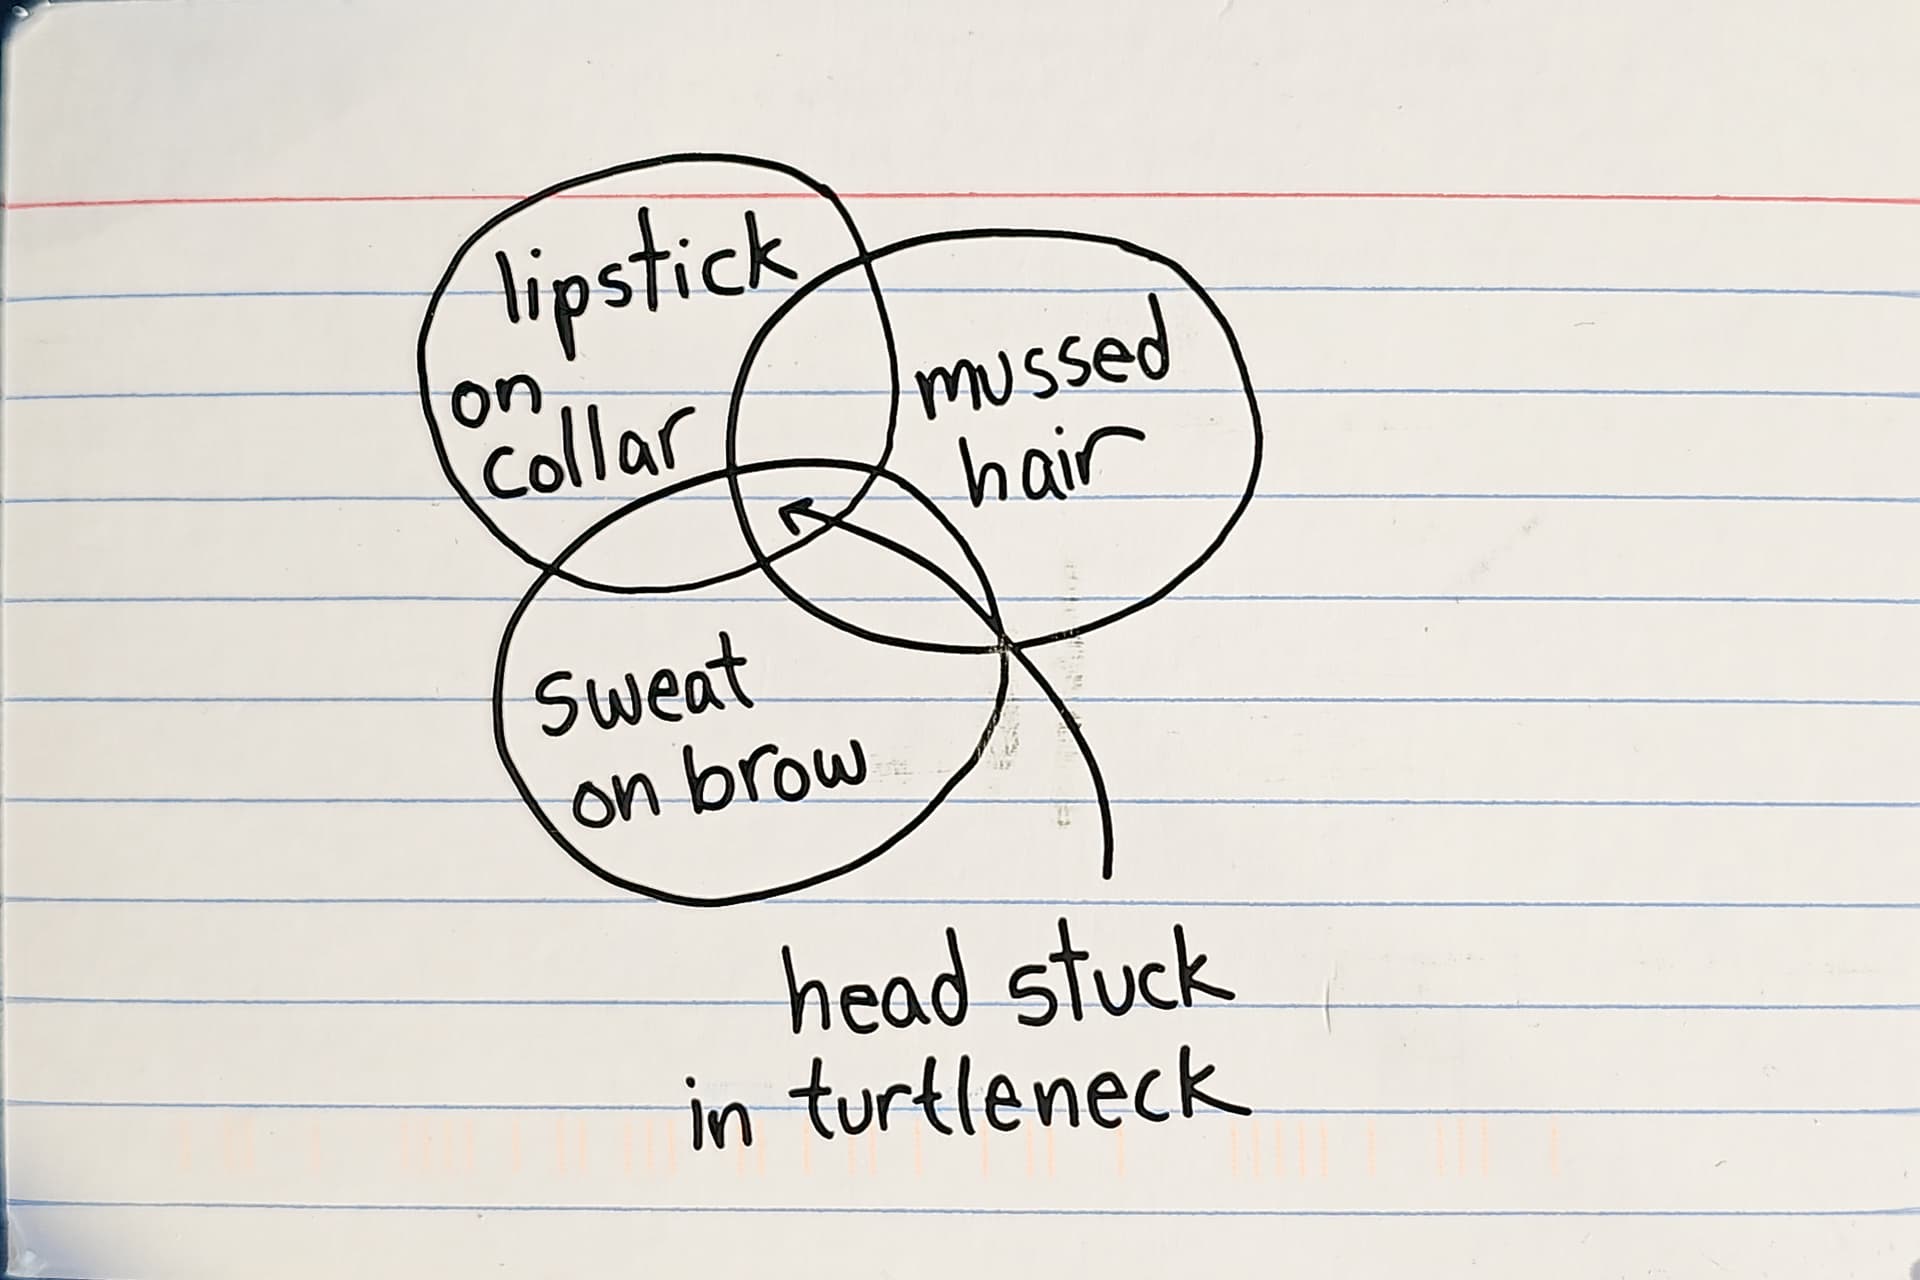 lipstick
on
collar
mussed
hair
sweat
on brow
head stuck
in turtleneck